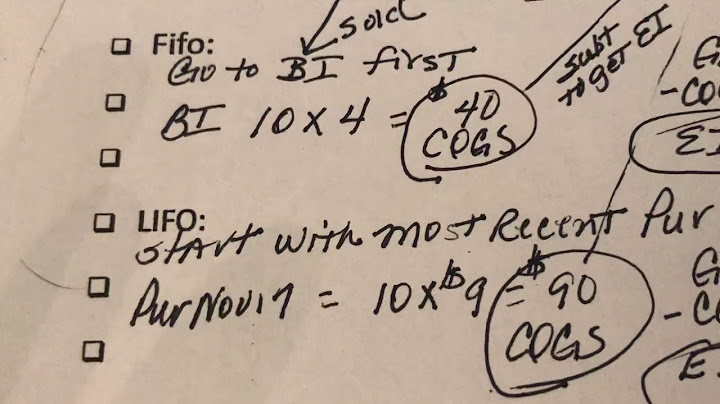 sold
Fifo:
Go to BI first
BI 10 X 4 = $40
COGS
subt
to get EI
G
- CO
EI
LIFO:
Start with most Recent Pur
Pur Nov 17 = 10 X $9 = $90
COGS
G
- C
E